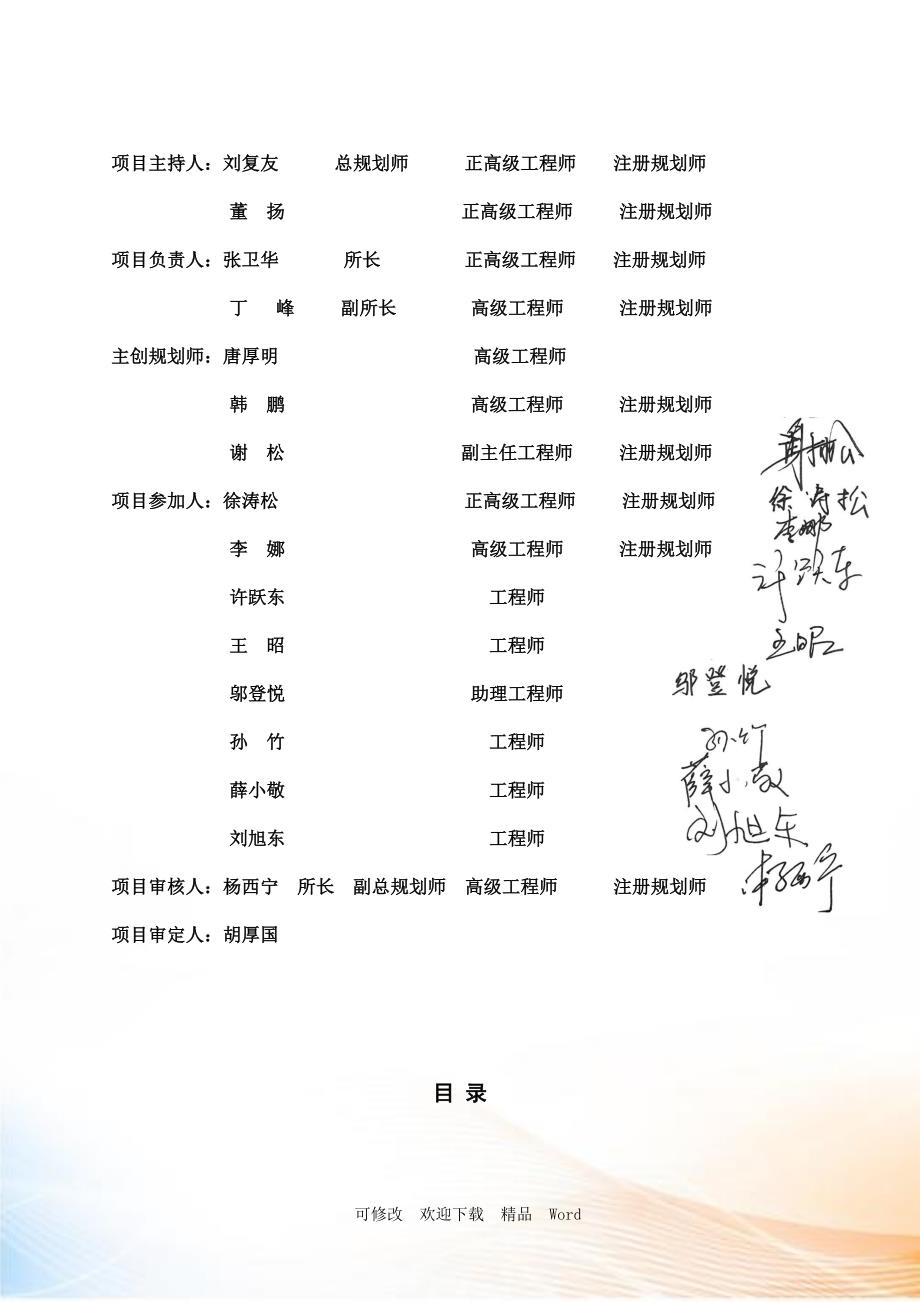 项目主持人：刘复友 总规划师 正高级工程师 注册规划师
董 扬 正高级工程师 注册规划师
项目负责人：张卫华 所长 正高级工程师 注册规划师
丁 峰 副所长 高级工程师 注册规划师
主创规划师：唐厚明 高级工程师
韩 鹏 高级工程师 注册规划师
谢 松 副主任工程师 注册规划师
项目参加人：徐涛松 正高级工程师 注册规划师
徐涛松
李 娜 高级工程师 注册规划师
李娜
许跃东 工程师
许跃东
王 昭 工程师
王昭
邬登悦 助理工程师
邬登悦
孙 竹 工程师
孙竹
薛小敬 工程师
薛小敬
刘旭东 工程师
刘旭东
项目审核人：杨西宁 所长 副总规划师 高级工程师 注册规划师
项目审定人：胡厚国
目 录
可修改 欢迎下载 精品 Word